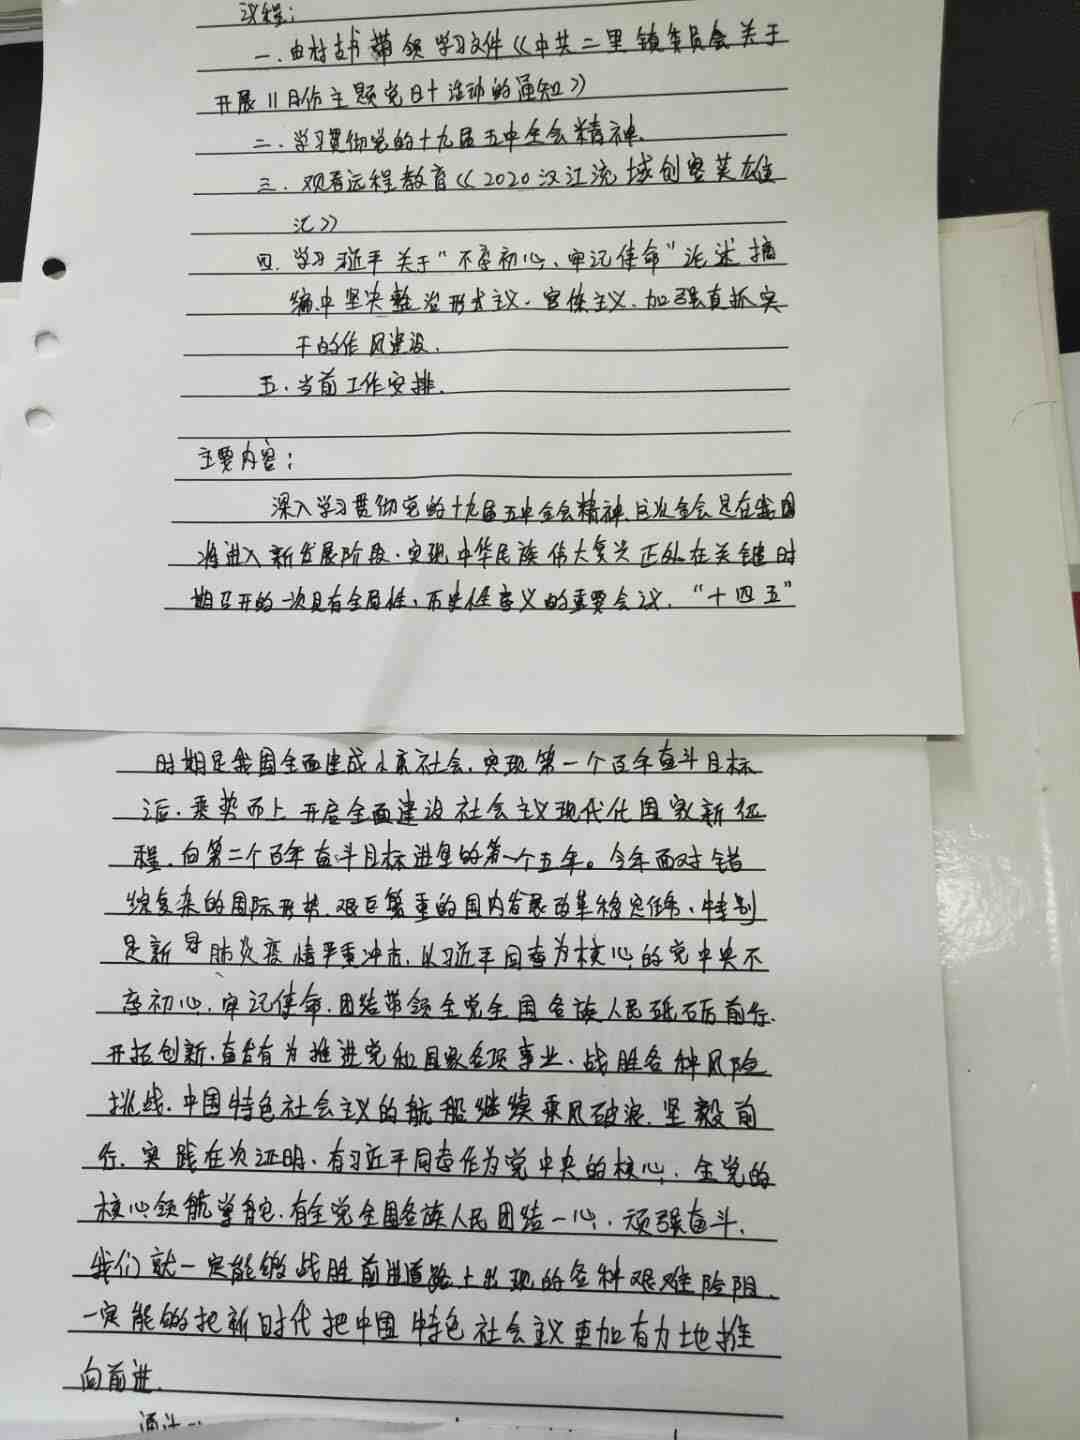 议程：
一.由村支书带领学习文件《中共二里镇委员会关于
开展11月份主题党日+活动的通知》
二.学习贯彻党的十九届五中全会精神.
三.观看远程教育《2020汉江流域创客英雄
汇》
四.学习习近平关于“不忘初心、牢记使命”论述摘
编中坚决整治形式主义.官僚主义.加强真抓实
干的作风建设.
五.当前工作安排.
主要内容：
深入学习贯彻党的十九届五中全会精神.这次全会是在我国
将进入新发展阶段.实现中华民族伟大复兴正处在关键时
期召开的一次具有全局性、历史性意义的重要会议.“十四五”
时期是我国全面建成小康社会.实现第一个百年奋斗目标
之后.乘势而上开启全面建设社会主义现代化国家新征
程.向第二个百年奋斗目标进军的第一个五年。今年面对错
综复杂的国际形势.艰巨繁重的国内发展改革稳定任务、特别
是新冠肺炎疫情严重冲击.以习近平同志为核心的党中央不
忘初心.牢记使命.团结带领全党全国各族人民砥砺前行.
开拓创新.奋发有为推进党和国家各项事业.战胜各种风险
挑战.中国特色社会主义的航船继续乘风破浪.坚毅前
行.实践在次证明.有习近平同志作为党中央的核心.全党的
核心领航掌舵.有全党全国各族人民团结一心.顽强奋斗.
我们就一定能够战胜前进道路上出现的各种艰难险阻.
一定能够把新时代把中国特色社会主义更加有力地推
向前进.